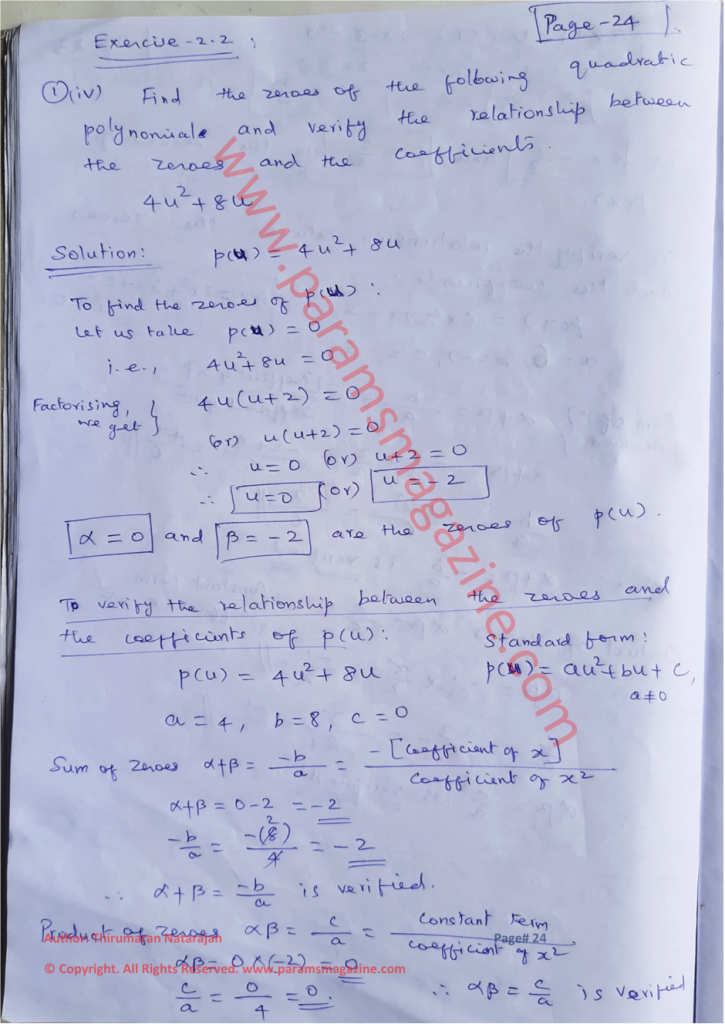 Page-24
Exercise-2.2 :
①(iv) Find the zeroes of the following quadratic
polynomials and verify the relationship between
the zeroes and the coefficients.
4u² + 8u
Solution: p(u) = 4u² + 8u
To find the zeroes of p(u) :
Let us take p(u) = 0
i.e., 4u² + 8u = 0
Factorising, we get } 4u(u+2) = 0
(or) u(u+2) = 0
∴ u = 0 (or) u+2 = 0
∴ u=0 (or) u = -2
α = 0 and β = -2 are the zeroes of p(u).
To verify the relationship between the zeroes and
the coefficients of p(u):
Standard form:
p(u) = 4u² + 8u
p(u) = au² + bu + c,
a≠0
a = 4, b = 8, c = 0
Sum of zeroes α+β = -b/a = -[coefficient of x]/coefficient of x²
α+β = 0-2 = -2
-b/a = -(8)/4 = -2
2
∴ α+β = -b/a is verified.
Product of zeroes αβ = c/a = constant term/coefficient of x²
αβ = 0 × (-2) = 0
c/a = 0/4 = 0. ∴ αβ = c/a is verified
www.paramsmagazine.com
Author: Thirumaran Natarajan
Page# 24
© Copyright. All Rights Reserved. www.paramsmagazine.com